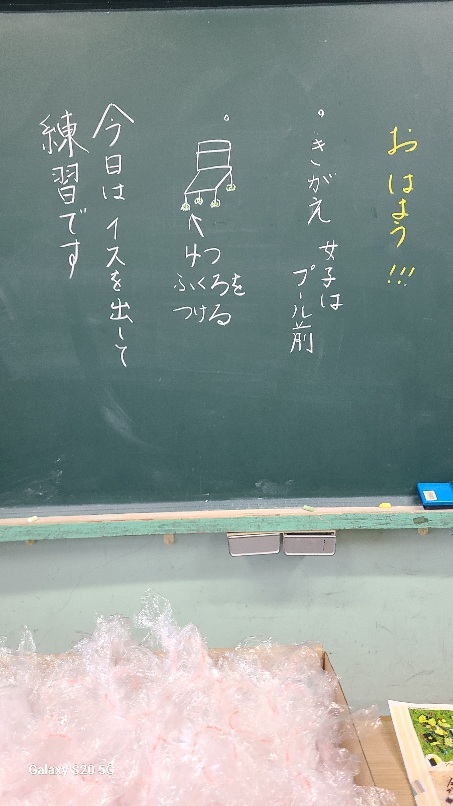 おはよう!!!
。きがえ 女子は
プール前
。
4つ
ふくろを
つける
今日はイスを出して
練習です
Galaxy S20 5G